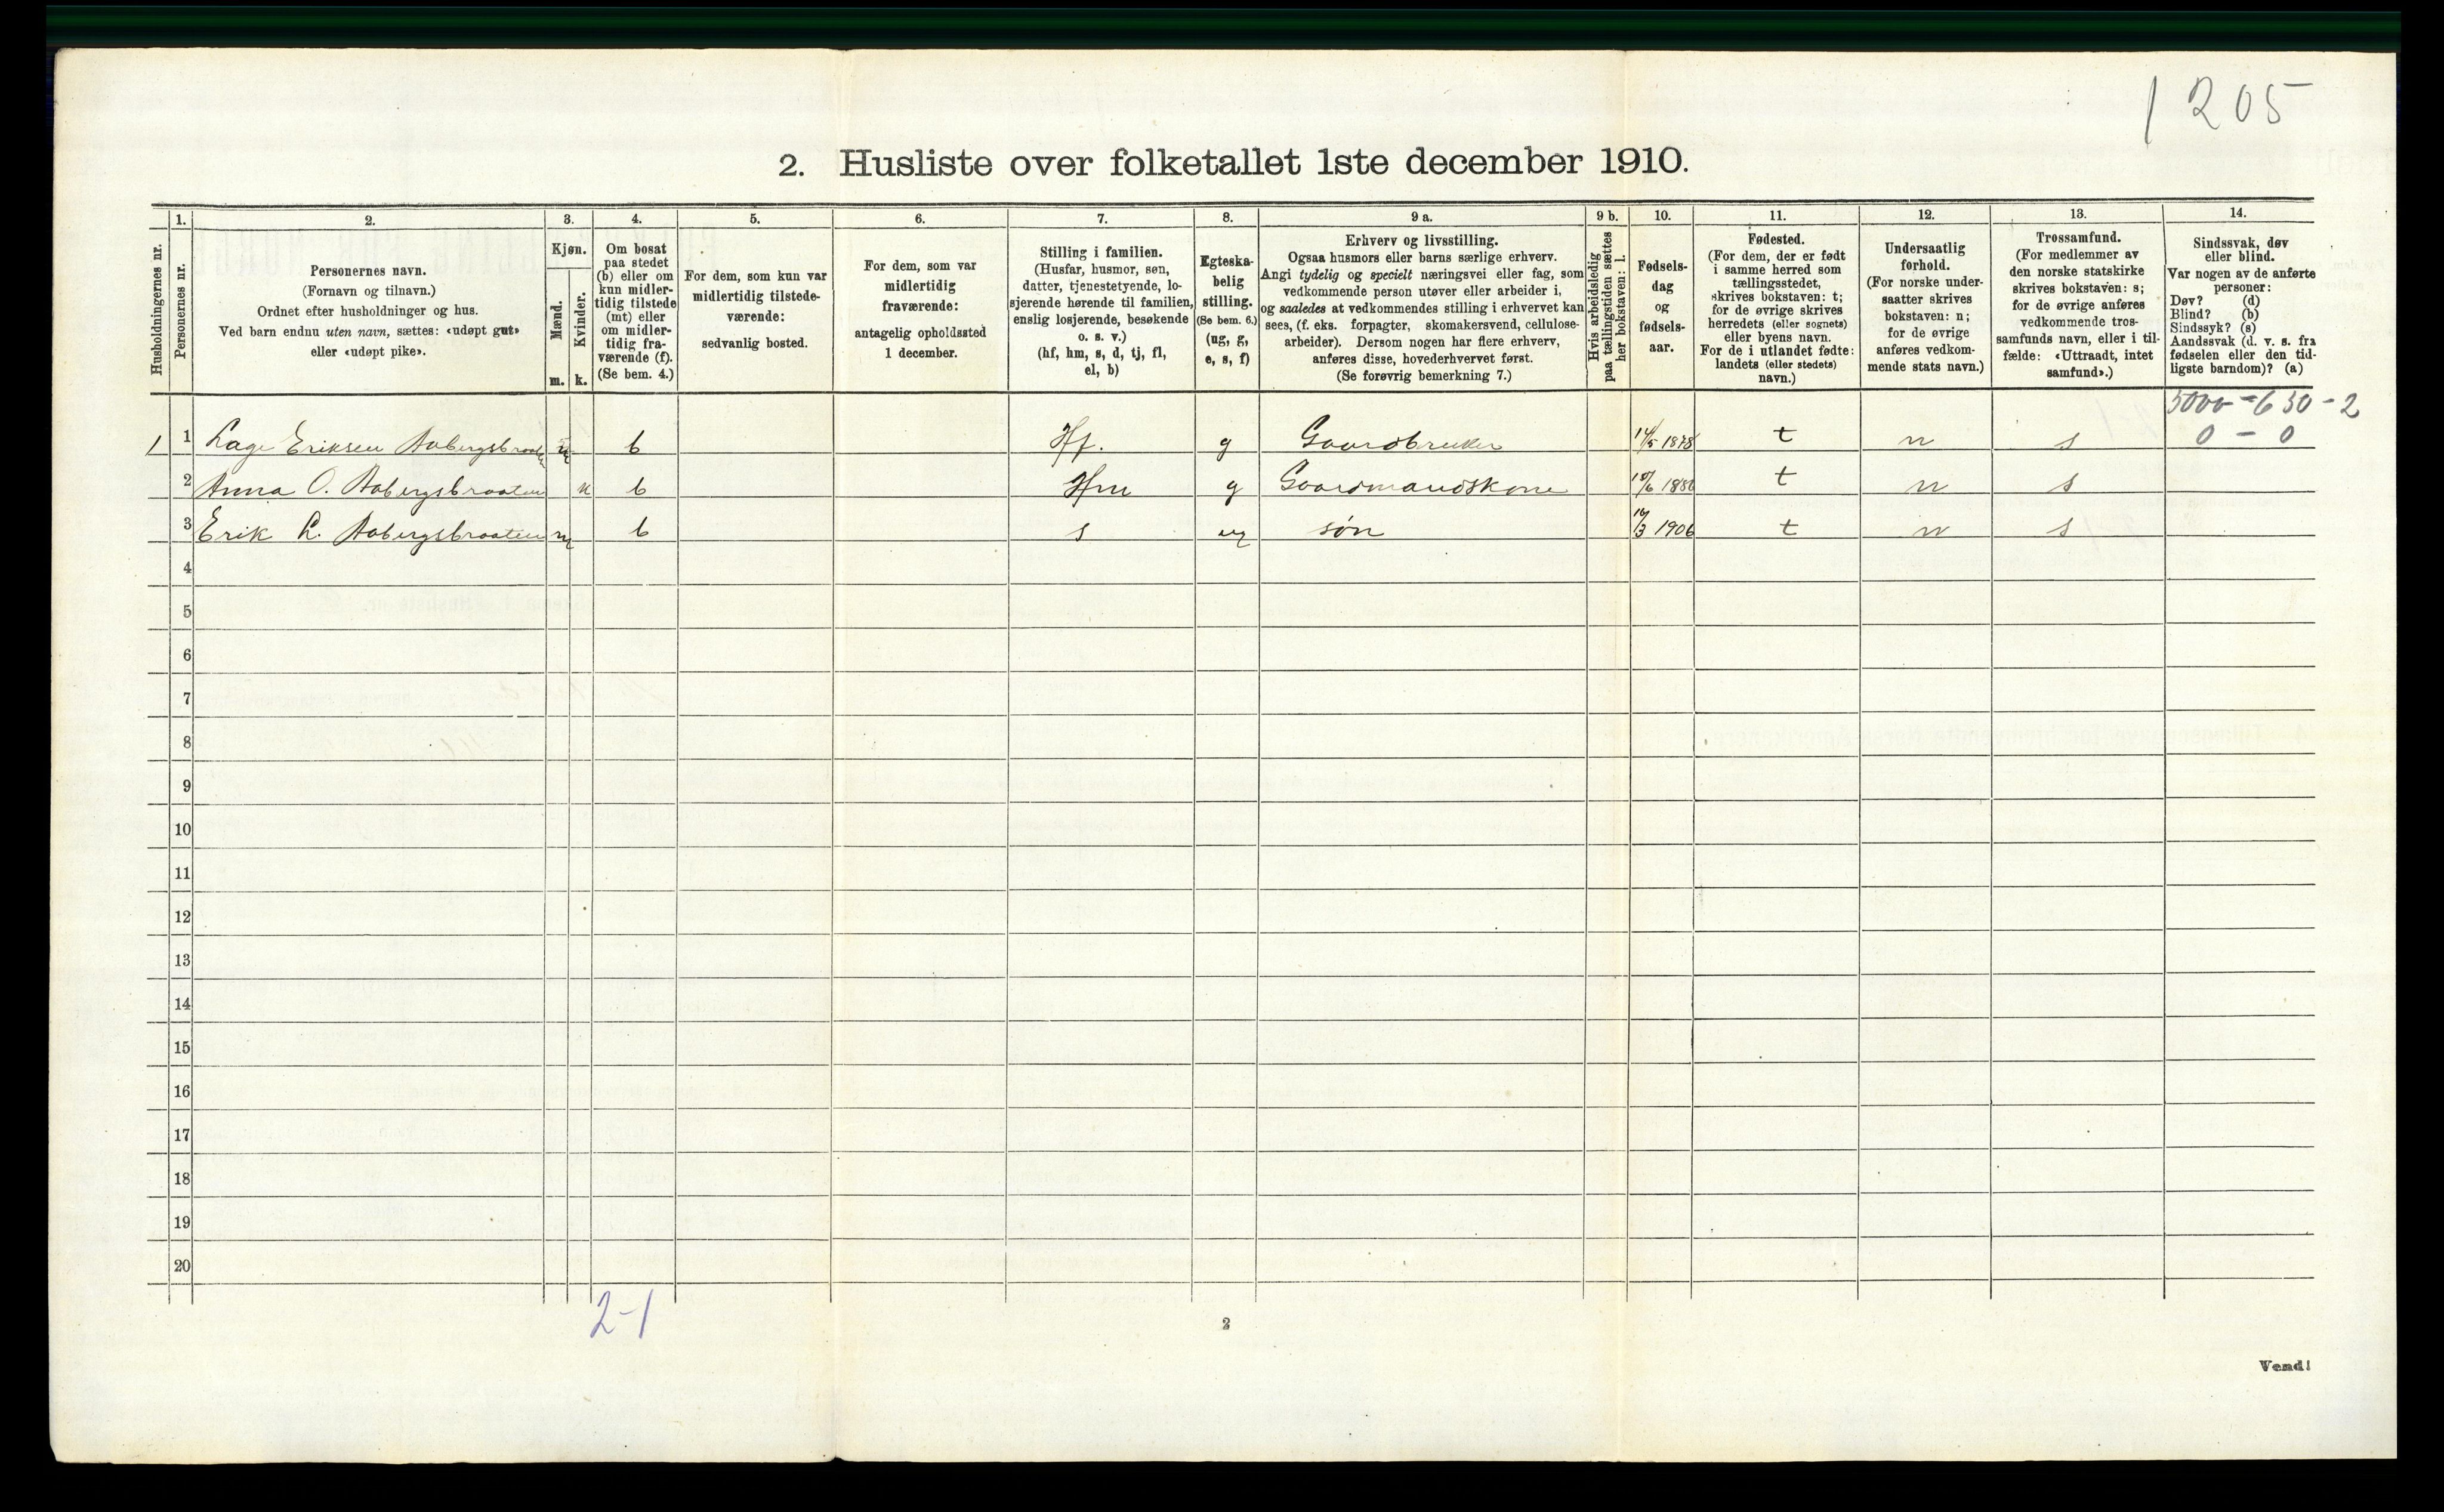 1205
2. Husliste over folketallet 1ste december 1910.
Husholdningernes nr.
1.
Personernes nr.
2.
Personernes navn.
(Fornavn og tilnavn.)
Ordnet efter husholdninger og hus.
Ved barn endnu uten navn, sættes: «udøpt gut»
eller «udøpt pike».
3.
Kjøn.
Mænd.
m.
Kvinder.
k.
4.
Om bosat
paa stedet
(b) eller om
kun midler-
tidig tilstede
(mt) eller
om midler-
tidig fra-
værende (f).
(Se bem. 4.)
5.
For dem, som kun var
midlertidig tilstede-
værende:
sedvanlig bosted.
6.
For dem, som var
midlertidig
fraværende:
antagelig opholdssted
1 december.
7.
Stilling i familien.
(Husfar, husmor, søn,
datter, tjenestetyende, lo-
sjerende hørende til familien,
enslig losjerende, besøkende
o. s. v.)
(hf, hm, s, d, tj, fl,
el, b)
8.
Egteska-
belig
stilling.
(Se bem. 6.)
(ug, g,
e, s, f)
9 a.
Erhverv og livsstilling.
Ogsaa husmors eller barns særlige erhverv.
Angi tydelig og specielt næringsvei eller fag, som
vedkommende person utøver eller arbeider i,
og saaledes at vedkommendes stilling i erhvervet kan
sees, (f. eks. forpagter, skomakersvend, cellulose-
arbeider). Dersom nogen har flere erhverv,
anføres disse, hovederhvervet først.
(Se forøvrig bemerkning 7.)
9 b.
Hvis arbeidsledig
paa tællingstiden sættes
her bokstaven: l.
10.
Fødsels-
dag
og
fødsels-
aar.
11.
Fødested.
(For dem, der er født
i samme herred som
tællingsstedet,
skrives bokstaven: t;
for de øvrige skrives
herredets (eller sognets)
eller byens navn.
For de i utlandet fødte:
landets (eller stedets)
navn.)
12.
Undersaatlig
forhold.
(For norske under-
saatter skrives
bokstaven: n;
for de øvrige
anføres vedkom-
mende stats navn.)
13.
Trossamfund.
(For medlemmer av
den norske statskirke
skrives bokstaven: s;
for de øvrige anføres
vedkommende tros-
samfunds navn, eller i til-
fælde: «Uttraadt, intet
samfund».)
14.
Sindssvak, døv
eller blind.
Var nogen av de anførte
personer:
Døv? (d)
Blind? (b)
Sindssyk? (s)
Aandssvak (d. v. s. fra
fødselen eller den tid-
ligste barndom)? (a)
5000 - 650 - 2
1 1 Lage Eriksen Aabergsbraaten m b Hf. g Gaardbruker 14/5 1878 t n s 0 - 0
2 Anna O. Aabergsbraaten k b Hm g Gaardmandskone 1886 t n s
3 Erik L. Aabergsbraaten m b s ug søn 1906 t n s
4
5
6
7
8
9
10
11
12
13
14
15
16
17
18
19
20
2-1
2
Vend!